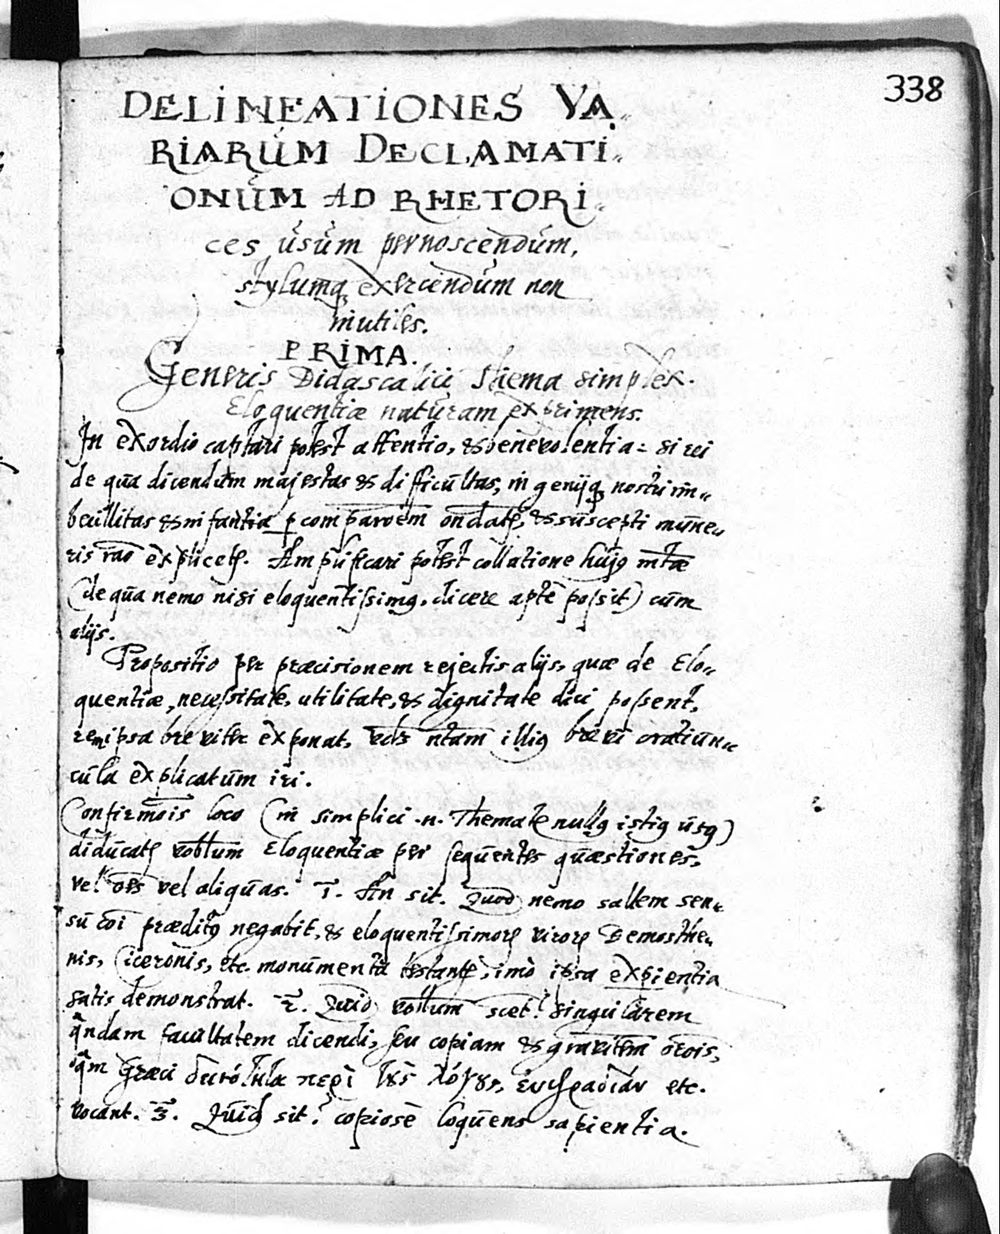 338
DELINEATIONES VA,,
RIARUM DECLAMATI,,
ONUM AD RHETORI,,
ces usum pernoscendum,
stylumq; exercendum non
inutiles.
PRIMA.
Generis Didascalici Thema simplex.
Eloquentiæ naturam exprimens.
In exordio captari potest attentio, & benevolentia: si rei
de qua dicendum majestas & difficultas, ingenijq; nostri im,,
becillitas & infantia p comparoem ondatr, & suscepti mune,,
ris rao explicetr. Amplificari potest collatione hujq mtæ
(de qua nemo nisi eloquentissimq, dicere aptè possit) cum
alijs.
Propositio per præcisionem rejectis alijs, quæ de Elo,,
quentiæ, necessitate, utilitate, & dignitate dici possent,
rem ipsa breviter exponat, ntam illiq brevi oratiun,,
cula explicatum iri.
Confirmois loco (in simplici .n. Themate nullq istiq usq)
diducatr vobulum Eloquentiæ per sequentes quæstiones,
vel oes vel aliquas. 1. An sit. Quod nemo saltem sen,,
su coi præditq negabit, & eloquentissimor viror Demosthe,,
nis, Ciceronis, etc. monumenta testantr, imò ipsa expientia
satis demonstrat. 2. Quid vobulum scet? Singularem
qndam facultatem dicendi, seu copiam & gravitem orois,
qm Græci περὶ λόγους, etc.
vocant. 3. Quid sit? copiosè loquens sapientia.